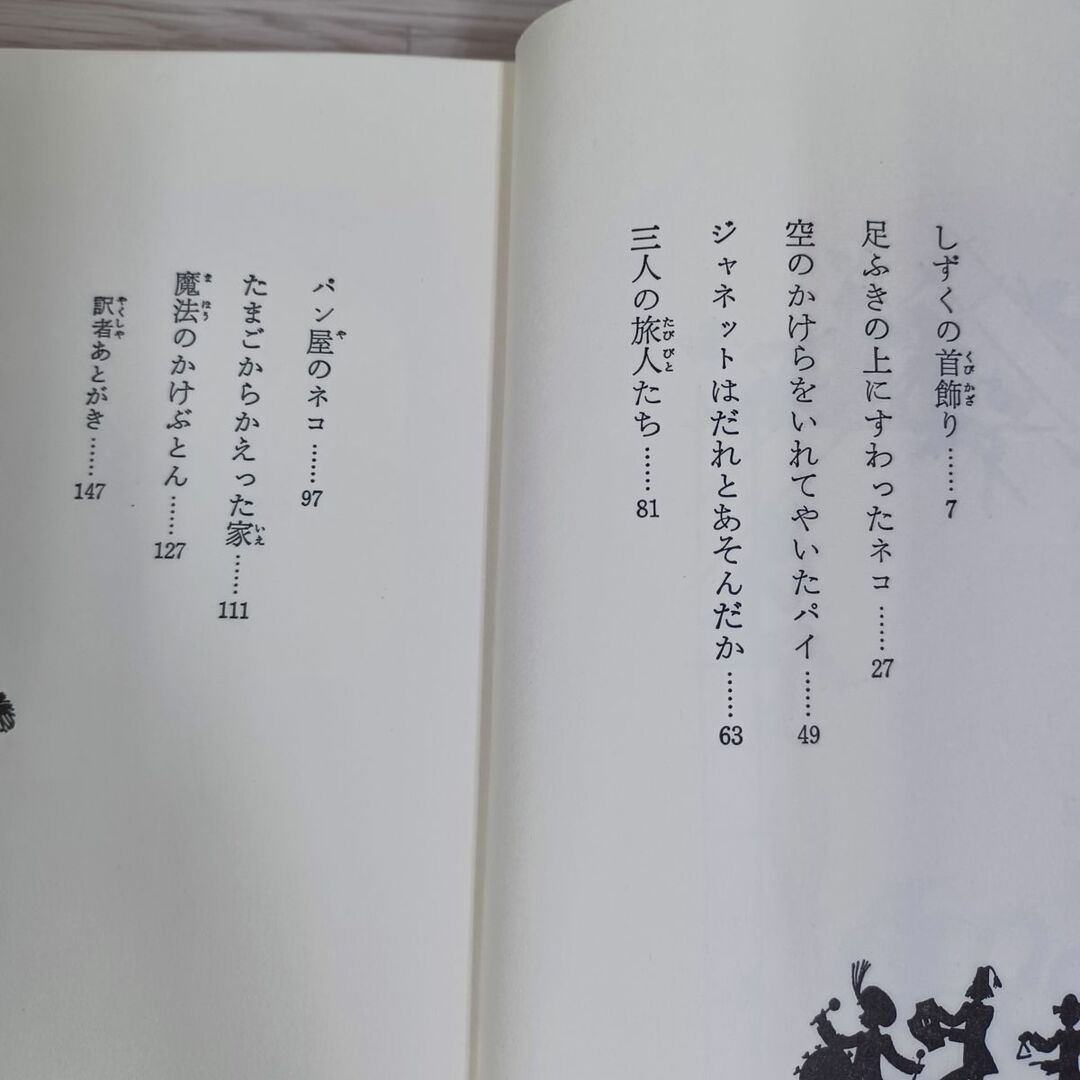 しずくの首飾り……7
足ふきの上にすわったネコ……27
空のかけらをいれてやいたパイ……49
ジャネットはだれとあそんだか……63
三人の旅人たち……81
パン屋のネコ……97
たまごからかえった家……111
魔法のかけぶとん……127
訳者あとがき……147